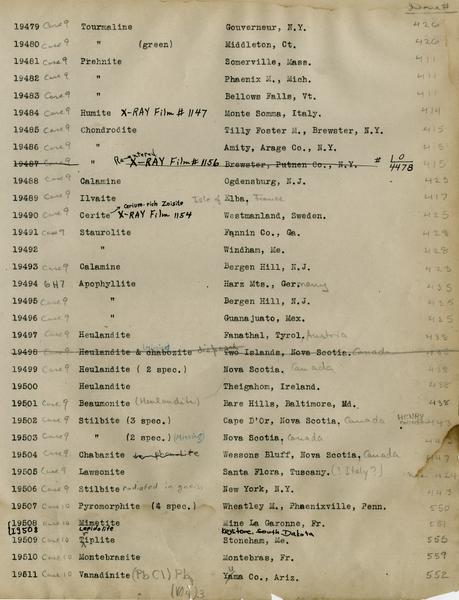 Dana #
19479 Case 9 Tourmaline Gouverneur, N.Y. 426
19480 Case 9 " (green) Middleton, Ct. 426
19481 Case 9 Prehnite Somerville, Mass. 411
19482 Case 9 " Phaenix M., Mich. 411
19483 Case 9 " Bellows Falls, Vt. 411
19484 Case 9 Humite X-RAY Film # 1147 Monte Somma, Italy. 414
19485 Case 9 Chondrodite Tilly Foster M., Brewster, N.Y. 415
19486 Case 9 " Amity, Arage Co., N.Y. 415
19487 Case 9 " X-RAY Film # 1156 Brewster, Putnen Co., N.Y. # 10/4478 415
19488 Case 9 Calamine Ogdensburg, N.J. 423
19489 Case 9 Ilvaite Isle of Elba, France 417
Cerium-rich Zoisite
19490 Case 9 Cerite X-RAY Film 1154 Westmanland, Sweden. 425
19491 Case 9 Staurolite Fannin Co., Ga. 428
19492 " Windham, Me. 428
19493 Case 9 Calamine Bergen Hill, N.J. 423
19494 6H7 Apophyllite Harz Mts., Germany 435
19495 Case 9 " Bergen Hill, N.J. 435
19496 Case 9 " Guanajuato, Mex. 435
19497 Case 9 Heulandite Fanathal, Tyrol. Austria 438
19498 Case 9 Heulandite & chabozite Two Islands, Nova Scotia. Canada
19499 Case 9 Heulandite ( 2 spec.) Nova Scotia. Canada 438
19500 Heulandite Theigahom, Ireland. 438
19501 Case 9 Beaumonite (Heulandite) Bare Hills, Baltimore, Md. 438
19502 Case 9 Stilbite (3 spec.) Cape D'Or, Nova Scotia, Canada HENRY 443
19503 Case 9 " (2 spec.) (Missing) Nova Scotia. Canada
19504 Case 9 Chabazite Wessons Bluff, Nova Scotia, Canada 447
19505 Case 9 Lawsonite Santa Flora, Tuscany. (? Italy?) 424
19506 Case 9 Stilbite radiated in gneiss New York, N.Y. 443
19507 Case 10 Pyromorphite (4 spec.) Wheatley M., Phaenixville, Penn. 550
19508 Case 10 Mimetite Mine La Garonne, Fr. 551
19508 Lepidolite Keystone, South Dakota
19509 Case 10 Tiplite Stoneham, Me. 556
19510 Case 10 Montebrasite Montebras, Fr. 559
19511 Case 10 Vanadinite (Pb Cl) Pb4 (VO4)3 Yuma Co., Ariz. 552